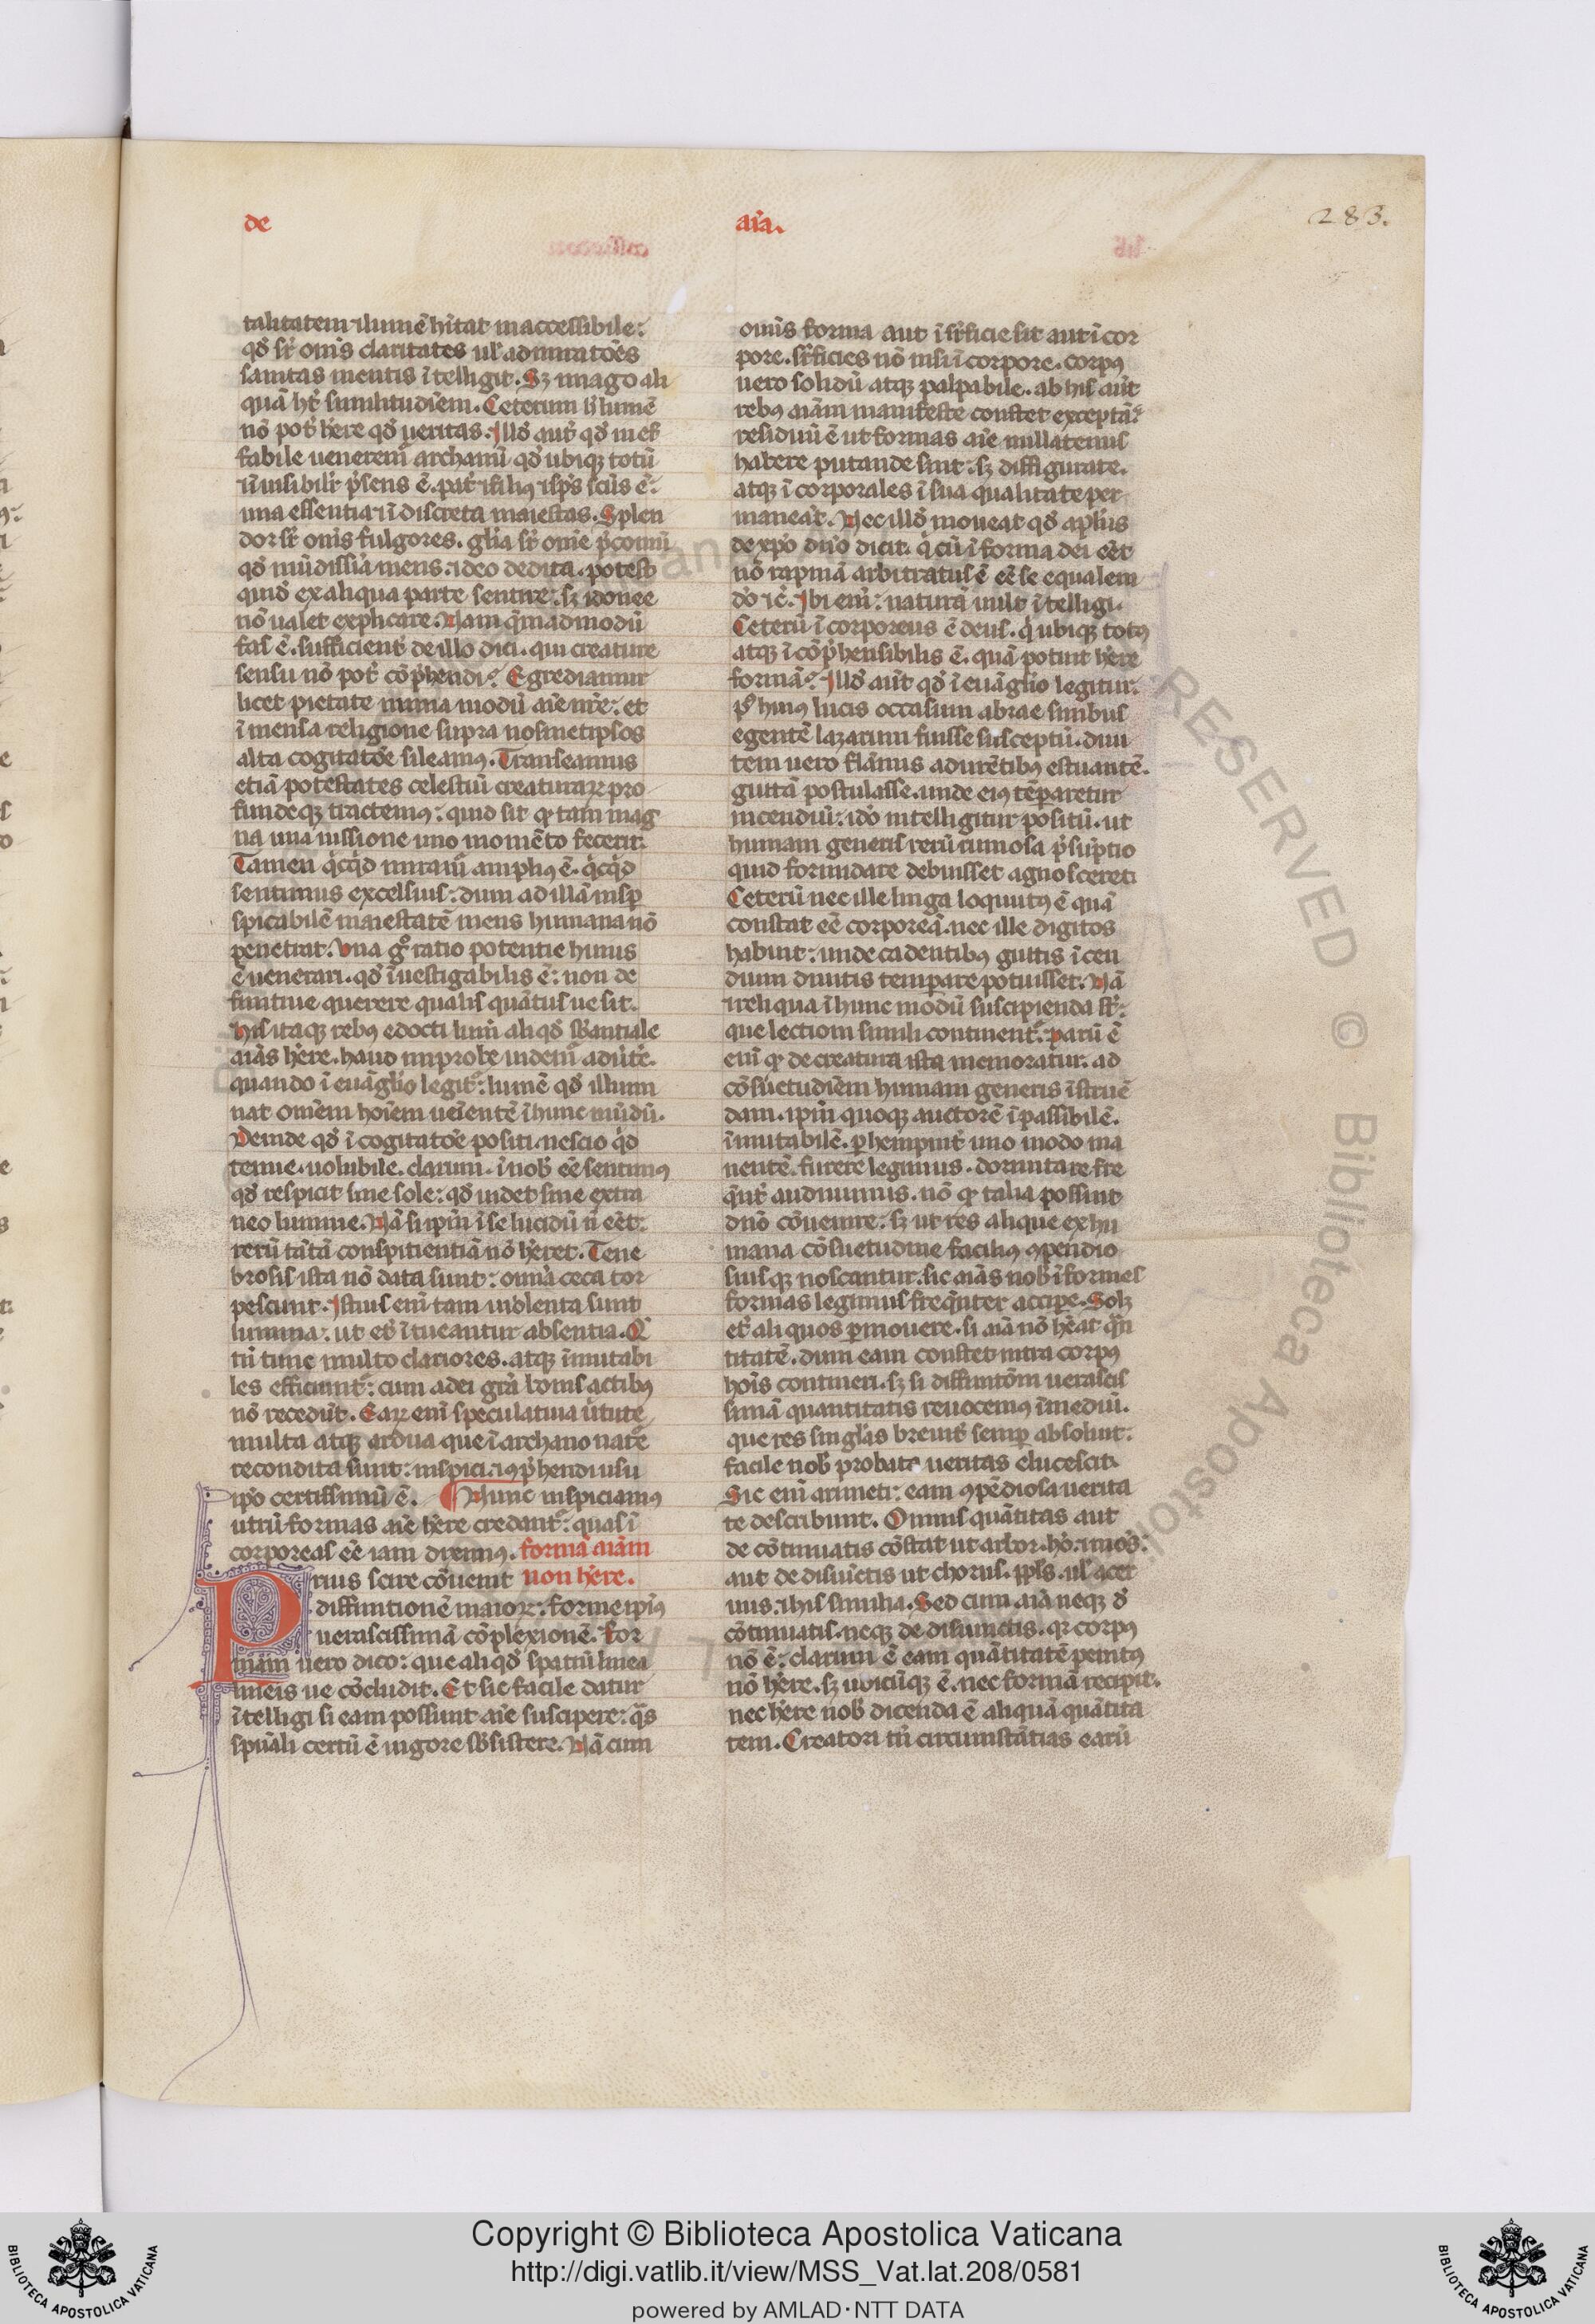 de
aīa.
283.
talitatem ⁊ lumē hītat inaccessibile:
qđ sr̄ omīs claritates ul̓ admiratōes
sanitas mentis ītelligit. Sꝫ imago ali
quā hꝫ similitudinem. Ceterum lumē
nō pōt hēre qđ ueritas. Illđ aūt qđ inef
fabile ueneremur archanū qđ ubiqꝫ totū
⁊ īuisibilit̄ p̄sens ē. pat̄ ⁊ filiꝰ ⁊ sp̄s scūs ē:
una essentia ⁊ īdiscreta maiestas. Splen
dor sr̄ omīs fulgores. gl̄ia sr̄ om̄e p̄coniū
qđ mūdissīa mens. ideo dedita. potest
quidē ex aliqua parte sentire: sꝫ idonee
nō ualet explicare. Nam q̄madmodū
fas ē. sufficient̄ de illo dici. qui creature
sensu nō pōt cōp̄hendi? Egrediamur
licet pietate nimia modū aīe nr̄e: et
īmensa religione supra nosmetipsos
alta cogitatōe sileamꝰ. Transeamus
etiā potestates celestiū creaturaꝝ pro
fundeqꝫ tractemꝰ: quid sit ꝙ tam mag
na una iussione uno momēto fecerit:
Tamen q̇cq̇d miramur ampliꝰ ē. q̇cq̇d
sentimus excelsius: dum ad illā insp̄
spicabilē maiestatē mens humana nō
penetrat. Una gͦ ratio potentie huius
ē uenerari. qđ īuestigabilis ē: non de
finitiue querere qualis quātus ue sit.
His itaqꝫ rebꝰ edocti lumē aliqđ sb̄antiale
aīas hēre. haud improbe uidemur aduertere.
quando ī euāgl̄io legit̄: lumē qđ illumi
nat omēm hoīem ueīentē ī hunc mūdū.
Deinde qđ ī cogitatōe positi. nescio q̇d
tenue. uolubile. clarum. ī nob̄ eē sentimꝰ
qđ respicit sine sole: qđ uidet sine extra
neo lumine. Nā si ipm̄ ī se lucidū n̄ eēt:
rerū tātā conspitientiā nō hēret. Tene
brosis ista nō data sunt: omīa ceca tor
pescunt. Istius enī tam uiolenta sunt
lumina: ut et̄ ītueantur absentia. Q̄
tn̄ tunc multo clariores. atqꝫ īmutabi
les efficiunt̄: cum a dei gr̄a bonis actibꝰ
nō recedūt. Eaꝝ enī speculatiua ūtute
multa atqꝫ ardua que ī archano nat̄e
recondita sunt: inspici. ⁊ ꝯp̄hendi usu
ip̄o certissimū ē. ¶ Nunc inspiciamꝰ
utrū formas aīe hēre credant̄: quas ī
corporeas eē iam diximꝰ. formā aīam
Prius scire cōuenit non hēre.
diffinitionē maioꝝ: forme ipiꝰ
ueracissimā cōplexionē. For
mam uero dico: que aliqđ spatiū linea
lineis ue cōcludit. Et sic facile datur
ītelligi si eam possunt aīe suscipere: q̄s
spūali certū ē uigore sb̄sistere. Nā cum
omīs forma aut ī sr̄ficie sit aut ī cor
pore. sr̄ficies nō nisi ī corpore. corpꝰ
uero solidū atqꝫ palpabile. ab his aūt
rebꝰ aīam manifeste constet exceptā:
residuū ē ut formas aīe nullatenus
habere putande sint: sꝫ diffigurate.
atqꝫ īcorporales ī sua qualitate per
maneāt. Nec illđ moueat qđ apl̄us
de xp̄o dn̄o dicit. q̇ cū ī forma dei eēt
nō rapinā arbitratus ē eē se equalem
dō ⁊c̄. Ibi enī: naturā uult ītelligi.
Ceterū īcorporeus ē deus. q̇ ubiqꝫ totꝰ
atqꝫ īcōp̄hensibilis ē. quā potuit hēre
formā? Illđ aūt qđ ī euāgl̄io legitur:
pꝰ huiꝰ lucis occasum abrae sinibus
egentē lazarum fuisse susceptū. diui
tem uero flāmis adurētibꝰ estuantē.
guttā postulasse. unde eiꝰ tēparetur
incendiū: idō intelligitur positū. ut
humani generis rerū rimosa p̄sūptio
quid formidare debuisset agnosceret.
Ceterū nec ille linga loquutꝰ ē quā
constat eē corporeā. nec ille digitos
habuit: unde cadentibꝰ guttis īcen
dium diuitis temperare potuisset. Nā
⁊ reliqua ī hunc modū suscipienda sr̄:
que lectioni simili continent̄. Parū ē
enī ꝙ de creatura ista memoratur. ad
cōsuetudīem humani generis īstruē
dam. ipm̄ quoqꝫ auctorē īpassibilē.
īmutabilē. p̄hempnit̄ uno modo ma
nentē. furere legimus. dormitare fre
q̄nt̄ audiuimus. nō ꝙ talia possint
dn̄o cōuenire: sꝫ ut res alique ex hu
mana cōsuetudine faciliꝰ ꝯpendio
siusqꝫ noscantur. sic aīas nob̄ īformes
formas legimus freq̄nter accipe. Solꝫ
et̄ aliquos pmouere. si aīa nō hēat q̄n
titatē. dum eam constet intra corpus
hoīs contineri. sꝫ si diffinitōm ueracis
simā quantitatis reuocemꝰ ī mediū.
que res singl̄as breuit̄ semp absoluit:
facile nob̄ probate ueritas elucescit.
Sic enī arimeti: eam ꝯpēdiosa uerita
te describunt. Omnis quātitas aut
de cōtinuatis cōstat ut arbor. hō. ⁊ mōs:
aut de disiūctis ut chorus. ppl̄s. ul̓ acer
uus. ⁊ his similia. Sed cum aīa neqꝫ đ
cōtinuatis. neqꝫ de disiunctis. qꝛ corpꝰ
nō ē: clarum ē eam quātitatē penitꝰ
nō hēre. sꝫ ubicūqꝫ ē. nec formā recipit.
nec hēre nob̄ dicenda ē aliquā quātita
tem. Creatori tn̄ circumstātias earū
Copyright © Biblioteca Apostolica Vaticana
http://digi.vatlib.it/view/MSS_Vat.lat.208/0581
powered by AMLAD·NTT DATA